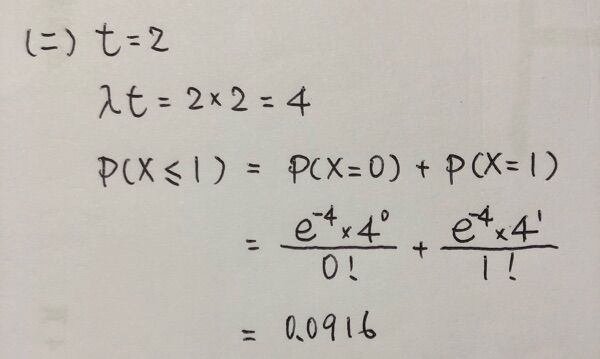 (二) t=2
λt = 2×2 = 4
P(X≤1) = P(X=0) + P(X=1)
= e⁻⁴×4⁰/0! + e⁻⁴×4¹/1!
= 0.0916